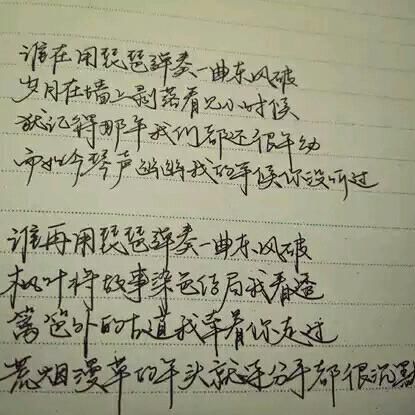 谁在用琵琶弹奏一曲东风破
岁月在墙上剥落看见小时候
犹记得那年我们都还很年幼
而如今琴声幽幽我的等候你没听过
谁再用琵琶弹奏一曲东风破
枫叶将故事染色结局我看透
篱笆外的古道我牵着你走过
荒烟漫草的年头就连分手都很沉默